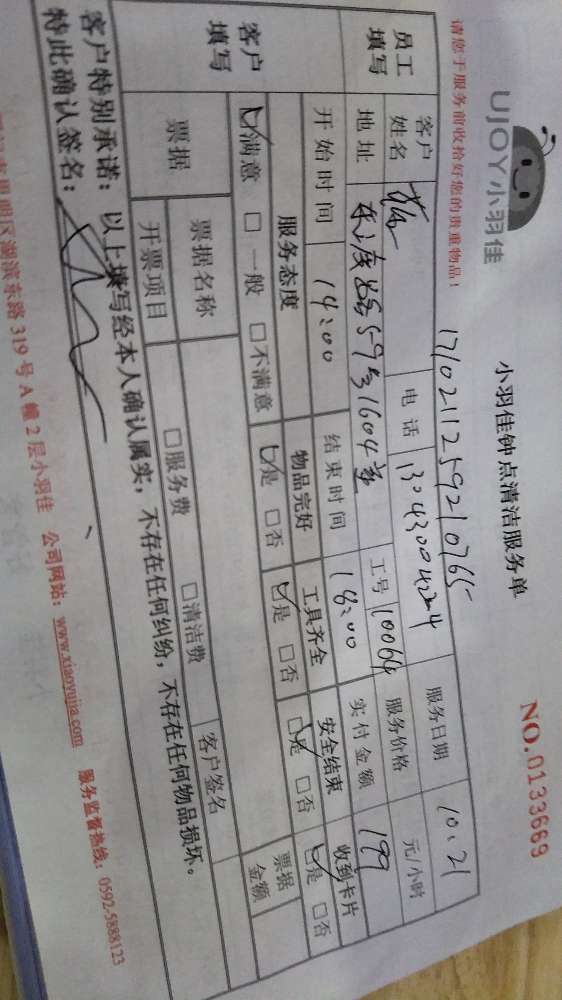 UJOY小羽佳
小羽佳钟点清洁服务单
NO.0133669
请您于服务前收拾好您的贵重物品！
1710211259210765
员工填写
客户姓名
电话
服务日期 10.21
地址
59号1604室
工号 10064
服务价格 元/小时
开始时间 14:00
结束时间 18:00
实付金额 199
客户填写
服务态度 物品完好 工具齐全 安全结束 收到卡片
☑满意 □一般 □不满意 ☑是 □否 ☑是 □否 ☑是 □否 ☑是 □否
票据
票据名称 □服务费 □清洁费
开票项目
客户签名
票据金额
客户特别承诺：以上填写经本人确认属实，不存在任何纠纷，不存在任何物品损坏。
特此确认签名：
明区湖滨东路319号A幢2层小羽佳 公司网站：www.xiaoyujia.com 服务监督热线：0592-5888123